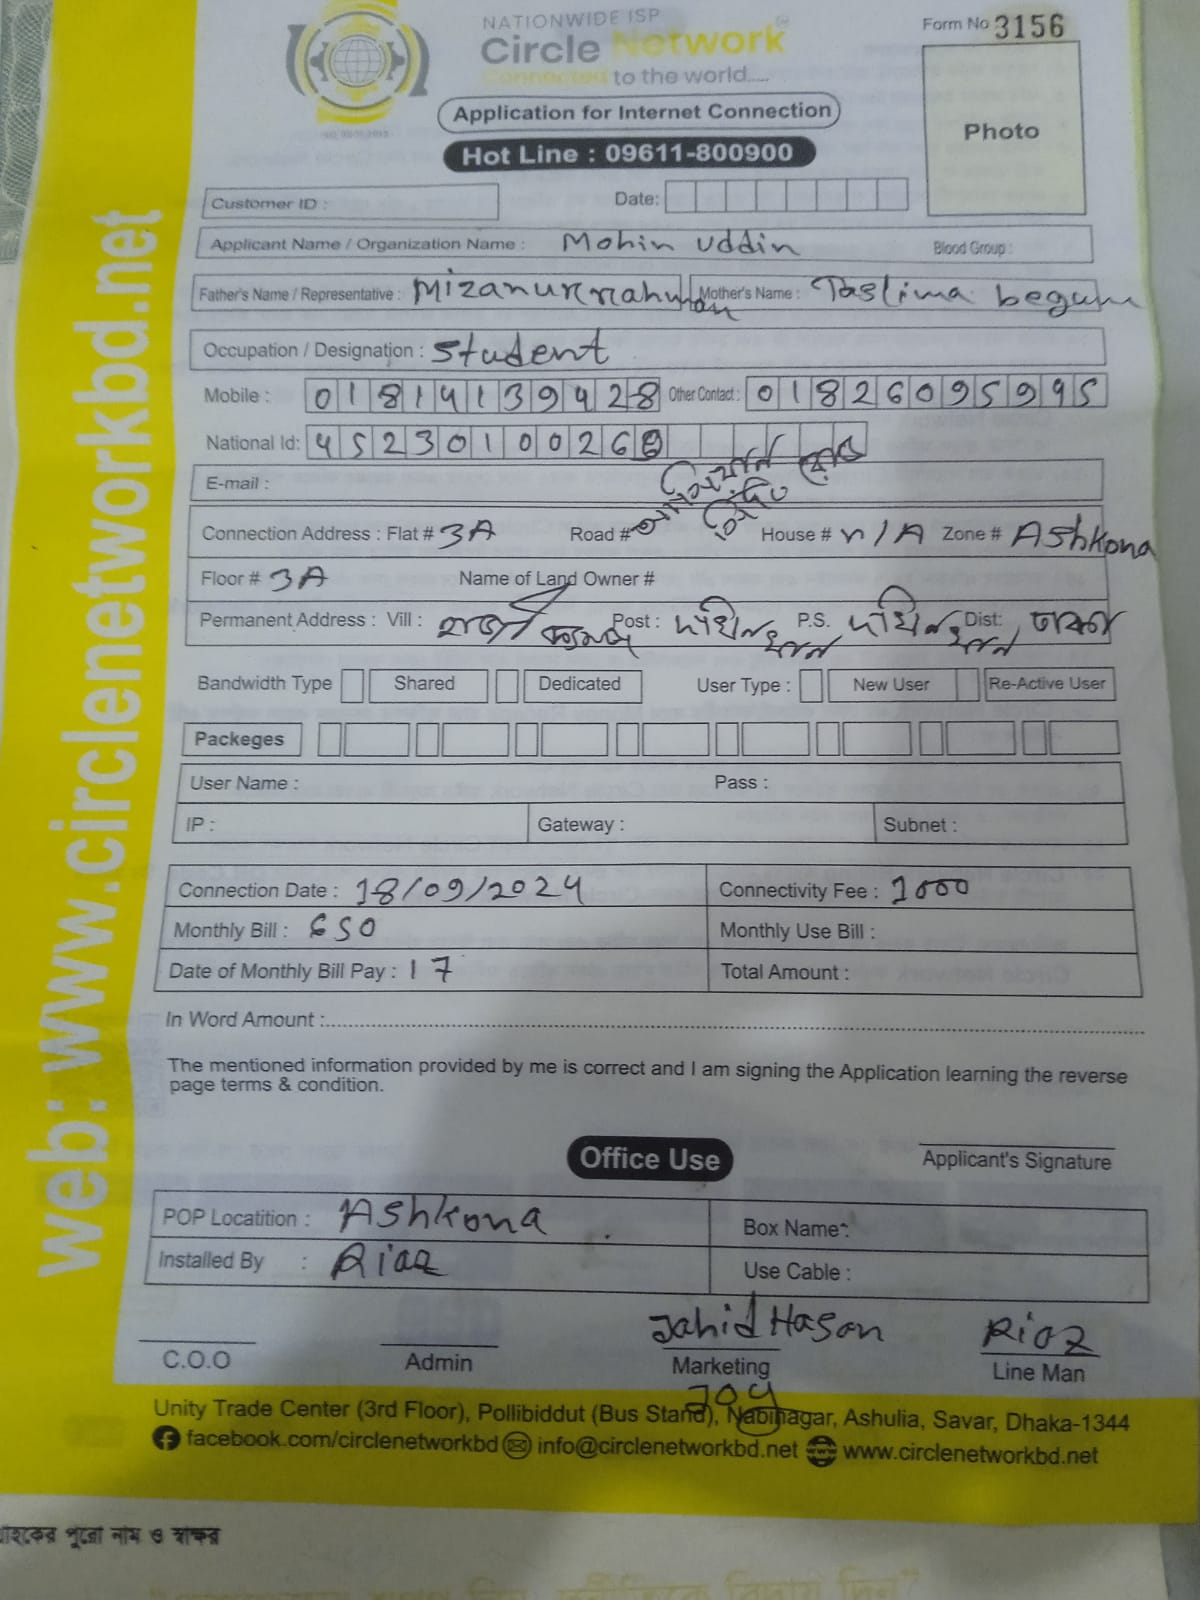 NATIONWIDE ISP
Circle Network
Connected to the world.....
Form No 3156
Photo
Application for Internet Connection
Hot Line : 09611-800900
Customer ID :
Date:
Applicant Name / Organization Name : Mohin uddin Blood Group :
Father's Name / Representative : Mizanurrahman Mother's Name : Taslima begum
Occupation / Designation : Student
Mobile : 01814139428 Other Contact : 01826095995
National Id: 4523010026
E-mail :
Connection Address : Flat # 3A Road # House # n/A Zone # Ashkona
Floor # 3A Name of Land Owner #
Permanent Address : Vill : Post : P.S. Dist: ঢাকা
Bandwidth Type Shared Dedicated User Type : New User Re-Active User
Packeges
User Name : Pass :
IP : Gateway : Subnet :
Connection Date : 18/09/2024 Connectivity Fee : 1000
Monthly Bill : 650 Monthly Use Bill :
Date of Monthly Bill Pay : 17 Total Amount :
In Word Amount :
The mentioned information provided by me is correct and I am signing the Application learning the reverse
page terms & condition.
Office Use
Applicant's Signature
POP Locatition : Ashkona Box Name :
Installed By : Riaz Use Cable :
Jahid Hasan Riaz
C.O.O Admin Marketing Line Man
Joy
Unity Trade Center (3rd Floor), Pollibiddut (Bus Stand), Nabinagar, Ashulia, Savar, Dhaka-1344
facebook.com/circlenetworkbd info@circlenetworkbd.net www.circlenetworkbd.net
web: www.circlenetworkbd.net
পুরো নাম ও স্বাক্ষর